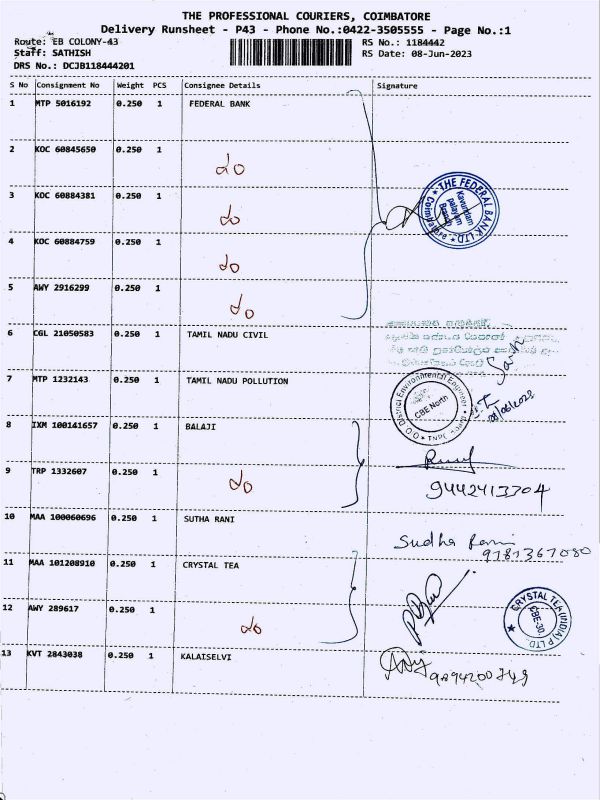 THE PROFESSIONAL COURIERS, COIMBATORE
Delivery Runsheet - P43 - Phone No.:0422-3505555 - Page No.:1
Route: EB COLONY-43 RS No.: 1184442
Staff: SATHISH RS Date: 08-Jun-2023
DRS No.: DCJB118444201
S No Consignment No Weight PCS Consignee Details Signature
1 MTP 5016192 0.250 1 FEDERAL BANK
2 KOC 60845650 0.250 1 do
THE FEDERAL BANK LTD.
Kavundam
palayam
Branch
Coimbatore
3 KOC 60884381 0.250 1 do
4 KOC 60884759 0.250 1 do
5 AWY 2916299 0.250 1 do
6 CGL 21050583 0.250 1 TAMIL NADU CIVIL
7 MTP 1232143 0.250 1 TAMIL NADU POLLUTION
District Environmental Engineer
CBE North
08/06/2023
8 IXM 100141657 0.250 1 BALAJI
9 TRP 1332607 0.250 1 do 9442413304
10 MAA 100060696 0.250 1 SUTHA RANI Sudha Rani
9781367080
11 MAA 101208910 0.250 1 CRYSTAL TEA
CRYSTAL TEA (INDIA) P LTD.
CBE-30.
12 AWY 289617 0.250 1 do
13 KVT 2843038 0.250 1 KALAISELVI